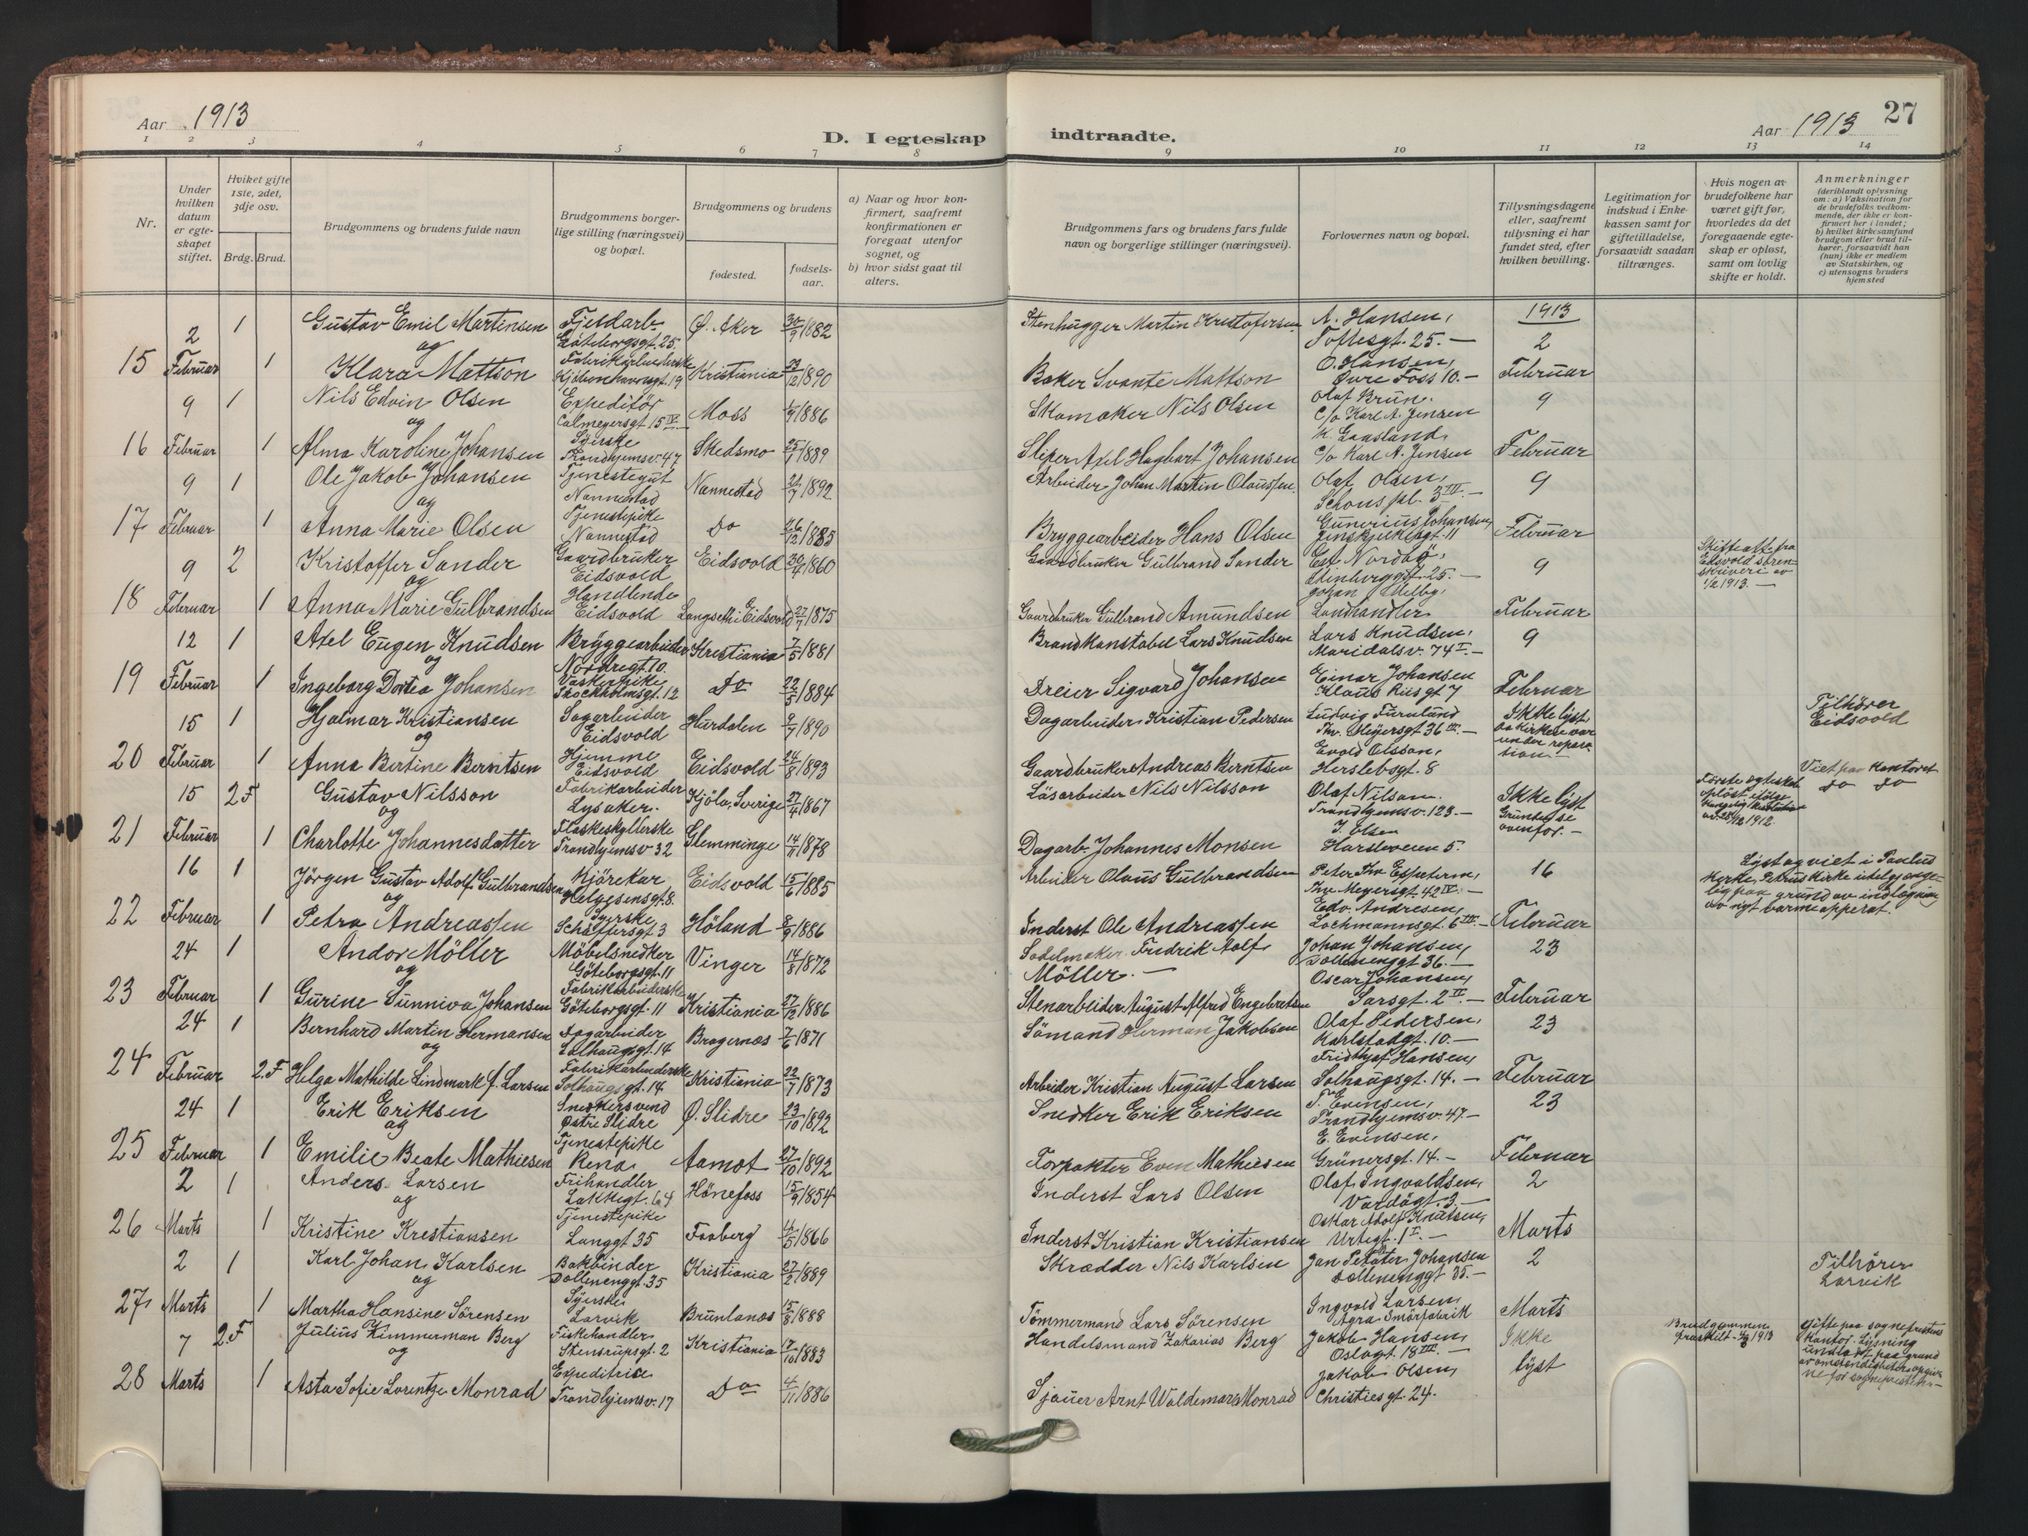 Aar 1913
D. I egteskap
indtraadte.
Aar 1913
27
1 2 3 4 5 6 7 8
9 10 11 12 13 14
Nr.
Under hvilken datum er egteskapet stiftet.
Hviket gifte 1ste, 2det, 3dje osv.
Brdg. Brud.
Brudgommens og brudens fulde navn
Brudgommens borgerlige stilling (næringsvei) og bopæl.
Brudgommens og brudens
fødested.
fødselsaar.
a) Naar og hvor konfirmert, saafremt konfirmationen er foregaat utenfor sognet, og
b) hvor sidst gaat til alters.
Brudgommens fars og brudens fars fulde navn og borgerlige stillinger (næringsvei).
Forlovernes navn og bopæl.
Tillysningsdagene eller, saafremt tillysning ei har fundet sted, efter hvilken bevilling.
Legitimation for indskud i Enkekassen samt for giftetilladelse, forsaavidt saadan tiltrænges.
Hvis nogen av brudefolkene har været gift før, hvorledes da det foregaaende egteskap er opløst, samt om lovlig skifte er holdt.
Anmerkninger
(deriblandt oplysning om: a) Vaksination for de brudefolks vedkommende, der ikke er konfirmert her i landet;
b) hvilket kirkesamfund brudgom eller brud tilhører, forsaavidt han (hun) ikke er medlem av Statskirken, og
c) utensogns bruders hjemsted
15 2 Februar 1 Gustav Emil Martinsen Fjeldarb. Göteborgsgt. 25. Ø. Aker 30/9 1882 Stenhugger Martin Kristofersen A. Hansen, Toftesgt. 25. — 1913 2
og
1 Klara Mattson Fabrikarbeiderske Kjöbenhavnsgt. 19 Kristiania 23/12 1890 Baker Svante Mattson O. Hansen, Övre Foss 10. — Februar
16 9 Februar 1 Nils Edvin Olsen Expeditör Calmeyersgt 15 IV Moss 1/9 1886 Skomaker Nils Olsen Olaf Brun. c/o Karl A. Jensen 9
og
1 Alma Karoline Johansen Syerske Trondhjemsv. 47 Skedsmo 25/1 1889 Sliper Axel Hagbart Johansen K. Gaasland, c/o Karl A. Jensen Februar
17 9 Februar 1 Ole Jakob Johansen Tjenestegut Nannestad Nannestad 21/7 1892 Arbeider Johan Martin Olaussen. Olaf Olsen, Schous pl. 3 III. — 9
og
1 Anna Marie Olsen Tjenestepike Nannestad Do 26/12 1885 Bryggearbeider Hans Olsen Gunerius Johansen, Februar
18 9 Februar 2 Kristoffer Sander Gaardbruker Eidsvold Eidsvold 30/4 1860 Gaardbruker Gulbrand Sander 9 Skifteatt. fra Eidsvold sorenskriveri av 1/2 1913. —
og
1 Anna Marie Gulbrandsen Handlende Eidsvold Langseth i Eidsvold 27/1 1875 Gaardbruker Gulbrand Amundsen Landhandler Februar
19 12 Februar 1 Axel Eugen Knudsen Bryggearbeider Nordregt. 10. Kristiania 7/5 1881 Brandkonstabel Lars Knudsen Lars Knudsen, Maridalsv. 74 I. — 9
og
1 Ingeborg Dortea Johansen Vaskerpike Stockholmsgt. 12 Do 22/5 1884 Dreier Sigvard Johansen Einar Johansen Klaus Riisgt 7 Februar
20 15 Februar 1 Hjalmar Kristiansen Sagarbeider Eidsvold Hurdalen 9/7 1890 Dagarbeider Kristian Pedersen Ludvig Furulund Thv. Meyersgt 36 III. — Ikke lyst da kirken var under reparation. — Tilhører Eidsvold
og
1 Anna Bertine Berntsen Hjemme Eidsvold Eidsvold 24/8 1893 Gaardbruker Andreas Berntsen Evald Olsson, Herslebsgt. 8 Viet paa kontoret
21 15 Februar 2 F Gustav Nilsson Fabrikarbeider Lysaker. Kjöla, Sverige 27/4 1867 Läsarbeider Nils Nilsson Olaf Nilsen Trondhjemsv. 123. — Ikke lyst Grundene ovenfor. — Første egteskab opløst ifølge kongelig resolution av 28/12 1912. do do
og
1 Charlotte Johannesdatter Flaskeskyllerske Trondhjemsv 32 Glemminge 14/11 1878 Dagarb. Johannes Monsen J. Olsen Harsleveien 5.
22 16 Februar 1 Jörgen Gustav Adolf Gulbrandsen Kjörekar Helgesensgt. 8. Eidsvold 15/6 1885 Arbeider Olaus Gulbrandsen Thv. Meyersgt. 42 IV. — 16 Lyst og viet i Paulus Kirke, Petrus Kirke utilgjængelig paa grund av indlægning av nyt varmeapparat.
og
1 Petra Andreassen Syerske Schäffersgt 3 Höland 8/9 1886 Inderst Ole Andreassen Edv. Andresen, Lochmannsgt. 6 III. — Februar
23 24 Februar 1 Andor Möller Möbelsnedker Göteborgsgt. 11 Vinger 14/8 1872 Sadelmaker Fredrik Adolf Möller. — Johan Johansen, Dælenenggt 36. — 23
og
1 Gurine Sunniva Johansen Fabrikarbeiderske Göteborgsgt. 11 Kristiania 27/12 1886 Stenarbeider August Alfred Engebretsen Oscar Johansen, Sarsgt. 2 IV. — Februar
24 24 Februar 1 Bernhard Martin Hermansen Solhaugsgt. 14 Bragernæs 7/6 1871 Sömand Herman Jakobsen Olaf Pedersen, Karlstadgt. 10. — 23
og
2. F Helga Mathilde Lindmark f. Larsen Fabrikarbeiderske Solhaugsgt. 14. Kristiania 22/7 1873 Arbeider Kristian August Larsen Fridtjof Hansen, Solhaugsgt. 14. — Februar
25 24 Februar 1 Erik Eriksen Snekkersvend Østre Slidre Ø. Slidre 23/10 1892 Snedker Erik Eriksen T. Evensen, Trondhjemsv. 47. — 23
og
1 Emilie Beate Mathiesen Tjenestepike Rena Aamot 27/10 1892 Forpakter Even Mathiesen E. Evensen, Grünersgt. 14. — Februar
26 2 Marts 1 Anders Larsen Frihandler Lakkegt. 64 Hönefoss 15/9 1854 Inderst Lars Olsen Olaf Ingvaldsen, Vardögt. 3. — 2
og
1 Kristine Kristiansen Tjenestepike Langgt 35 Faaberg 4/5 1866 Inderst Kristian Kristiansen Oskar Adolf Knutsen, Urtegt. 1 I. — Marts
27 2 Marts 1 Karl Johan Karlsen Bokbinder Dælenenggt. 35 Kristiania 27/2 1889 Skrædder Nils Karlsen Johansen Dælenenggt 35. — 2 Tilhører Larvik
og
1 Martha Hansine Sörensen Syerske Larvik Brunlanæs 15/8 1888 Tömmermand Lars Sörensen Ingvald Larsen, Agra Smörfabrik Marts
28 7 Marts 2. F Julius Zimmerman Berg Fiskehandler Stensrupsgt. 2 Kristiania 17/10 1883 Handelsmand Zakarias Berg Jakob Hansen, Oslogt. 18 III. — Ikke Brudgommen fraskilt 1913 Gifte paa sogneprestens kontor. Lysning undladt paa grund av omstændigheter opgivne for sognepresten. —
og
1 Asta Sofie Lorentze Monrad Expeditrice Trondhjemsv. 17 Do 4/11 1886 Sjauer Arnt Waldemar Monrad Jakob Olsen, Christiesgt. 24. lyst